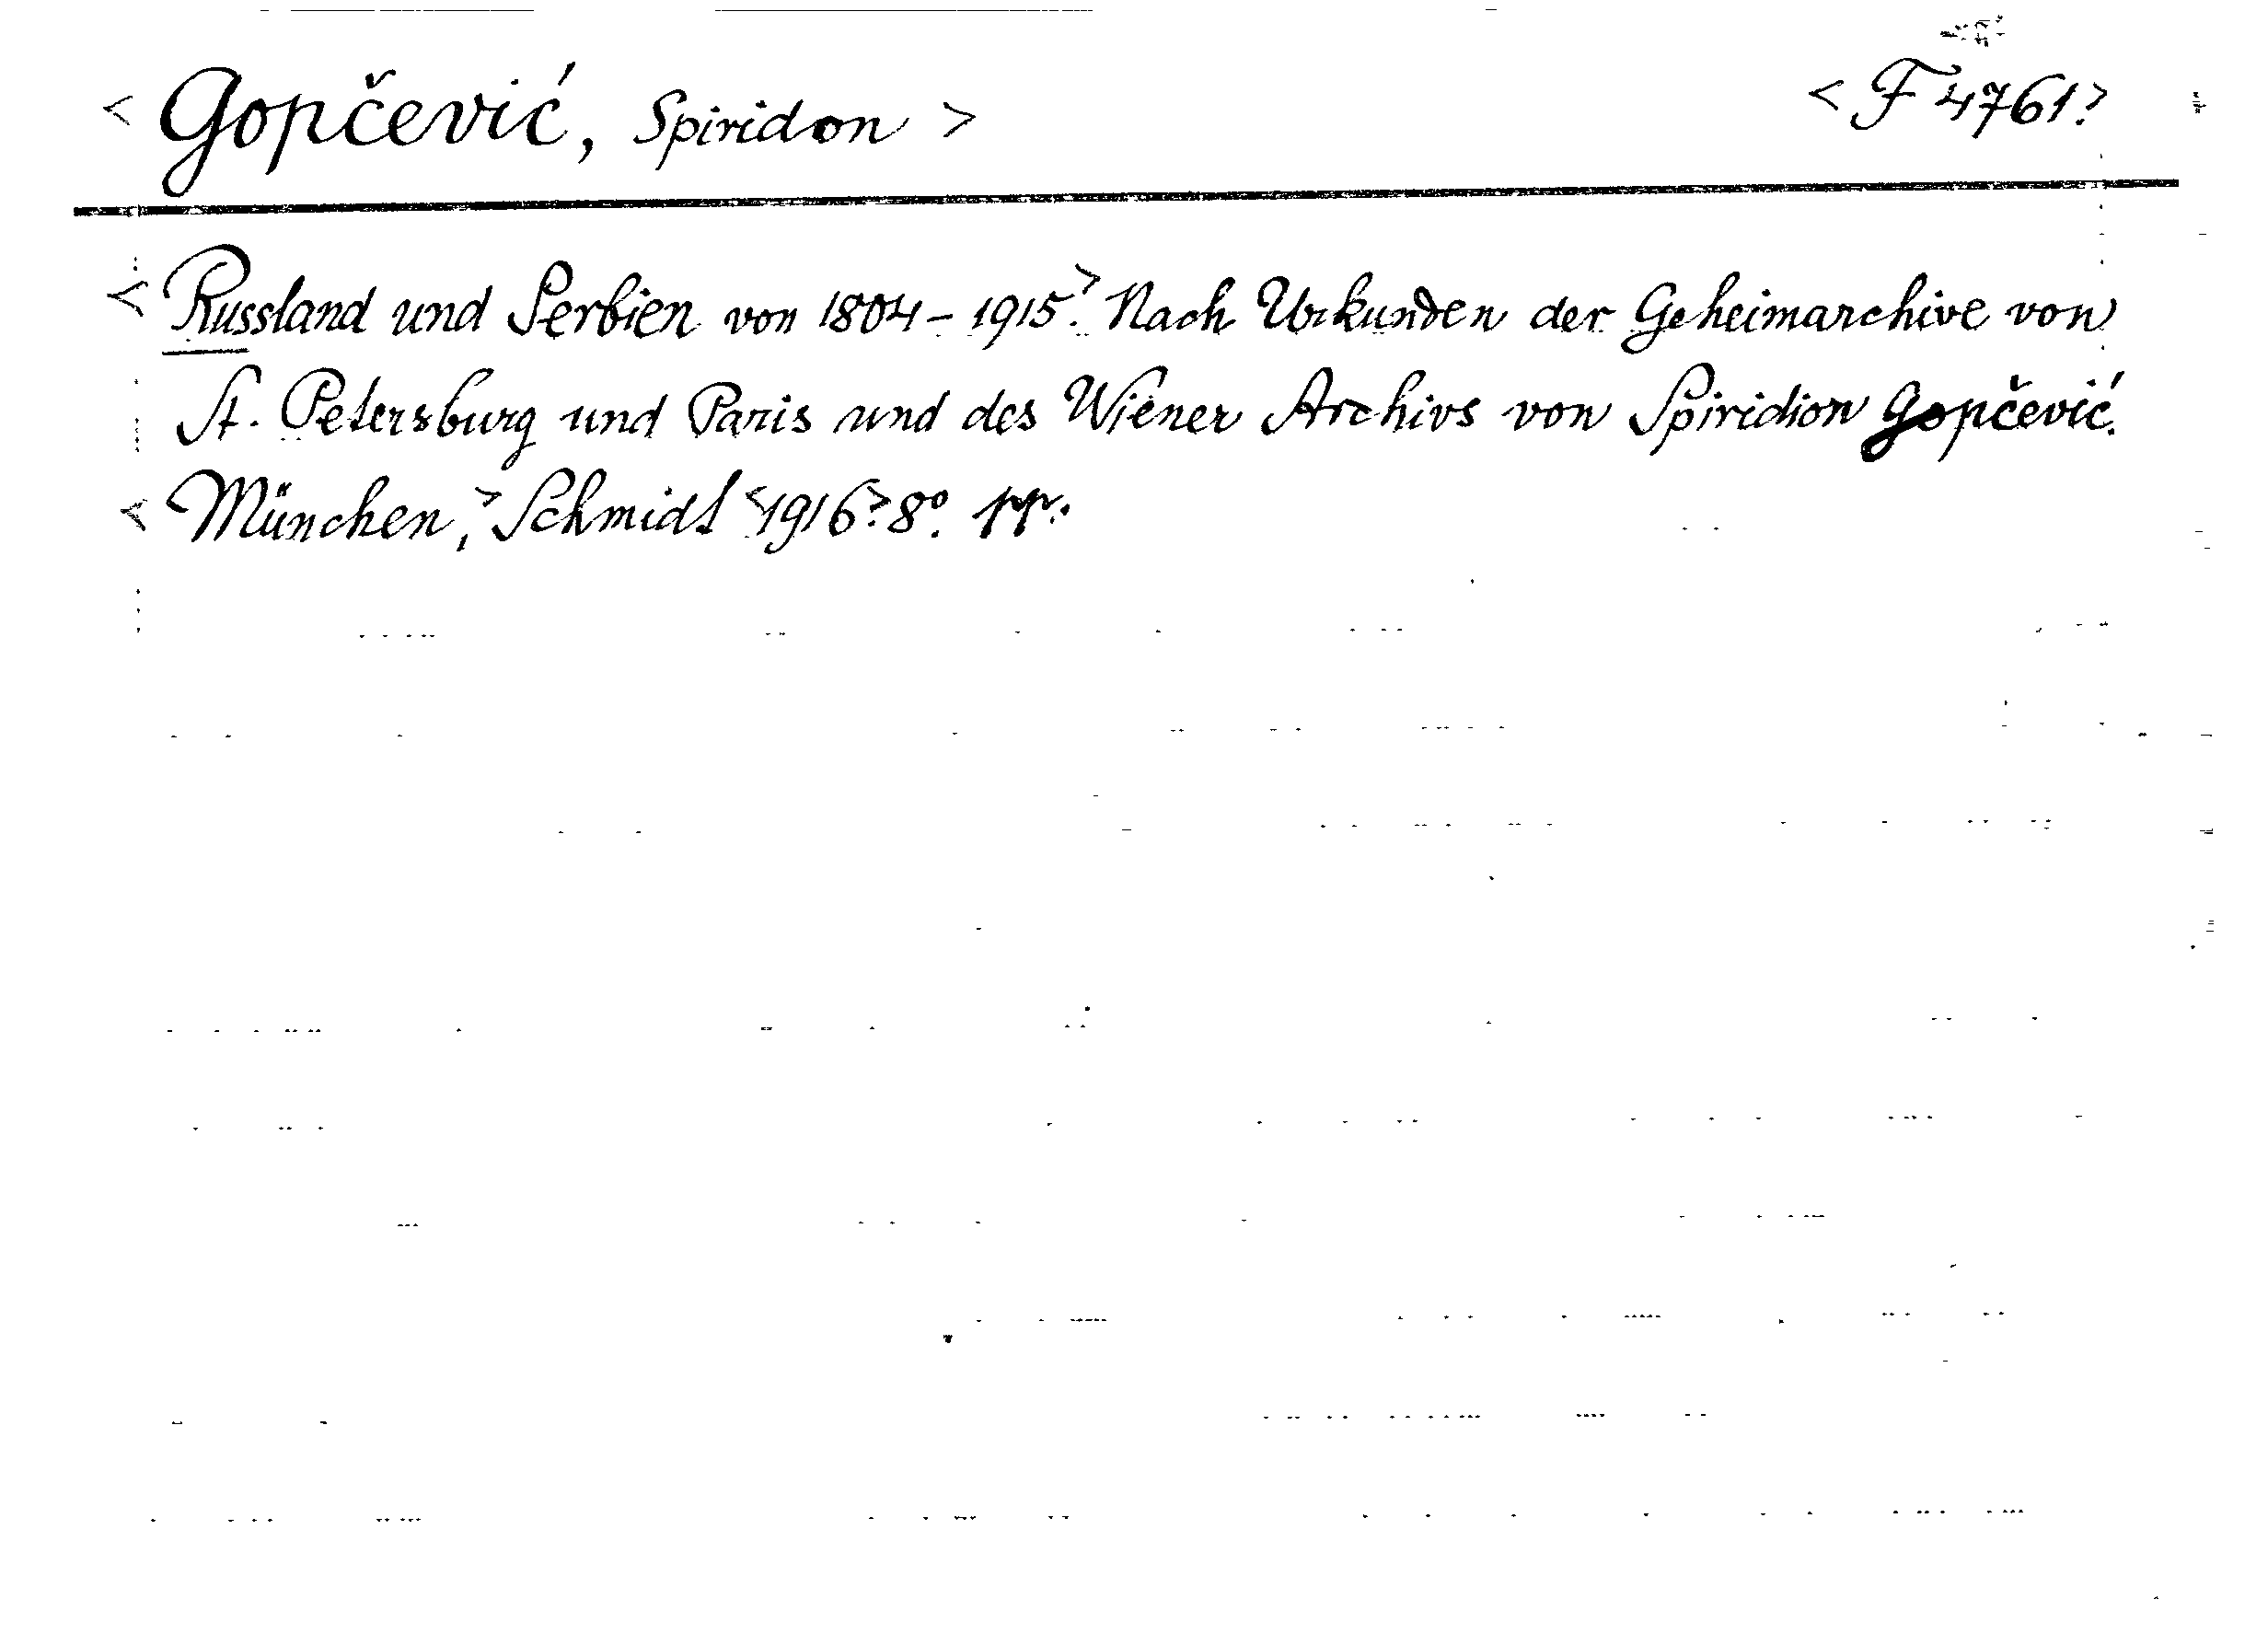 < Gopčević, Spiridon > < F 4761.>
< Russland und Serbien von 1804 - 1915.> Nach Urkunden der Geheimarchive von
St. Petersburg und Paris und des Wiener Archivs von Spiridion Gopčević.
< München,> Schmidt <1916.> 8°. pp.